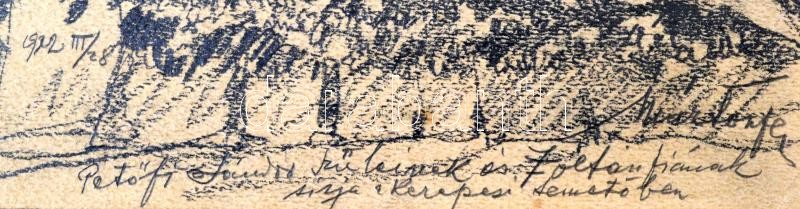 1922 III/28
Petőfi Sándor szüleinek és Zoltán fiának
sírja a Kerepesi temetőben